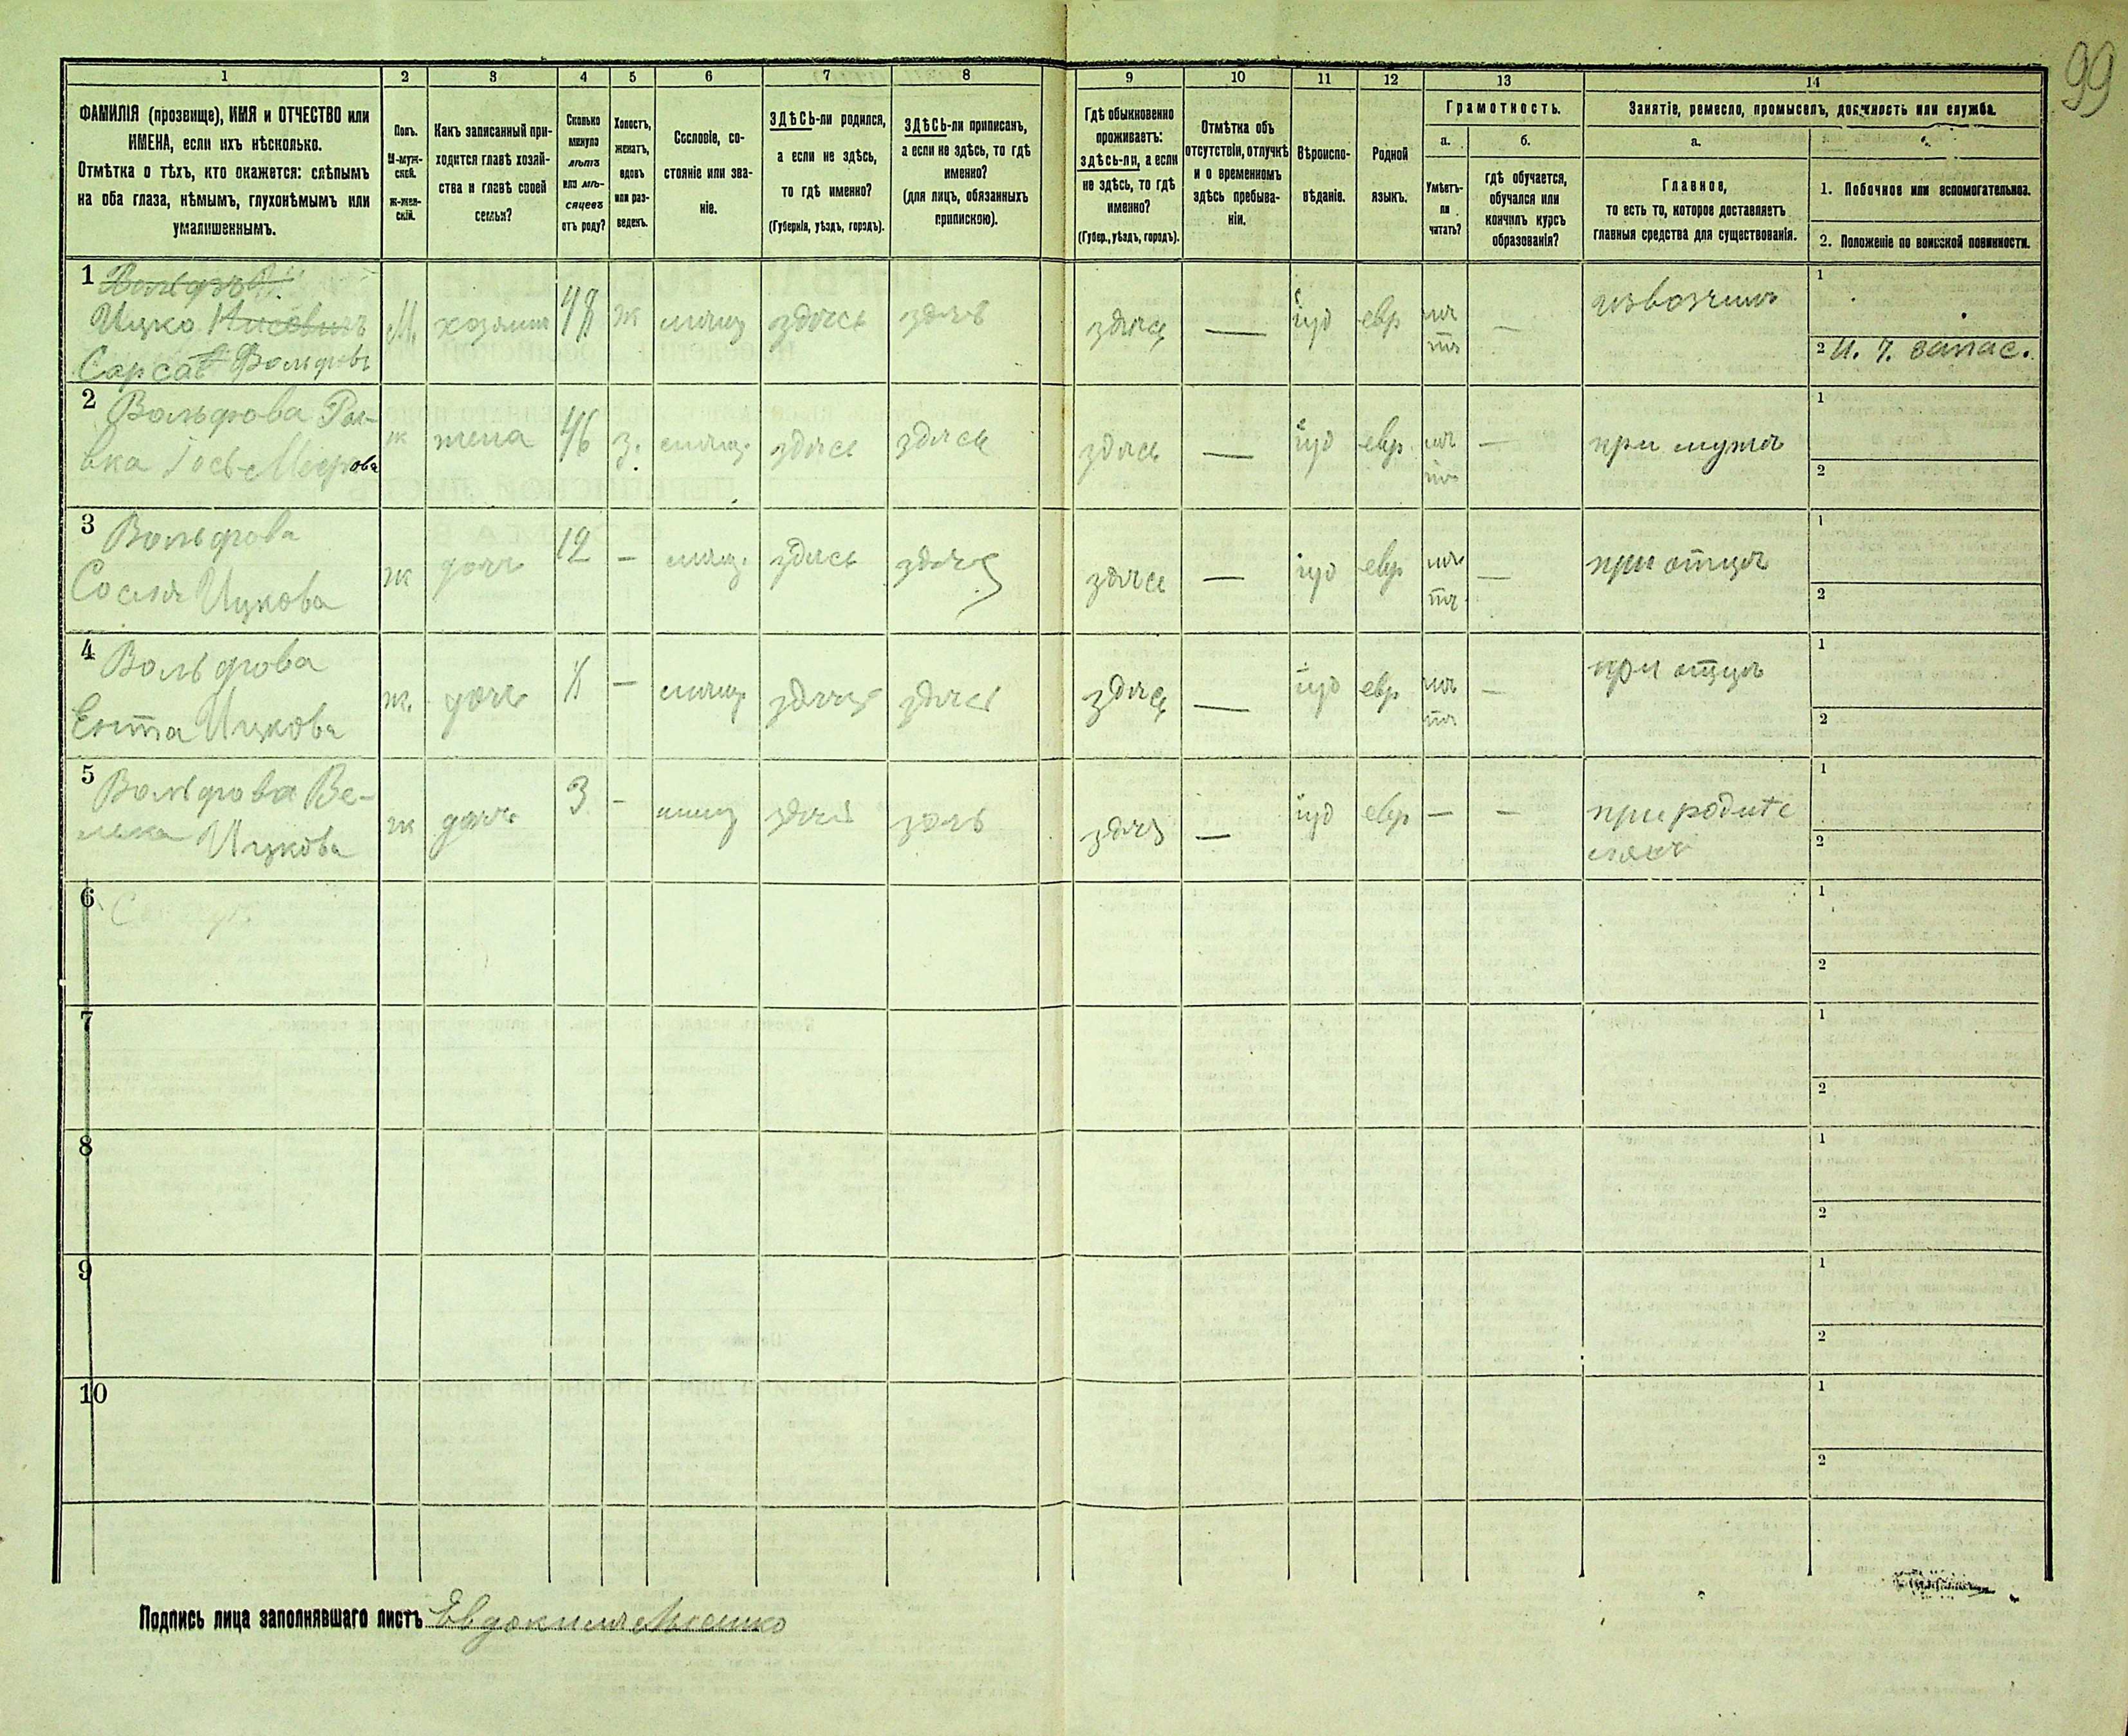 99
1 2 3 4 5 6 7 8 9 10 11 12 13 14
ФАМИЛІЯ (прозвище), ИМЯ и ОТЧЕСТВО или
ИМЕНА, если ихъ нѣсколько.
Отмѣтка о тѣхъ, кто окажется: слѣпымъ
на оба глаза, нѣмымъ, глухонѣмымъ или
умалишеннымъ.
Полъ.
М-муж-
ской.
Ж-жен-
скій.
Какъ записанный при-
ходится главѣ хозяй-
ства и главѣ своей
семьи?
Сколько
минуло
лѣтъ
или мѣ-
сяцевъ
отъ роду?
Холостъ,
женатъ,
вдовъ
или раз-
веденъ.
Сословіе, со-
стояніе или зва-
ніе.
ЗДѢСЬ-ли родился,
а если не здѣсь,
то гдѣ именно?
(Губернія, уѣздъ, городъ).
ЗДѢСЬ-ли приписанъ,
а если не здѣсь, то гдѣ
именно?
(для лицъ, обязанныхъ
припискою).
Гдѣ обыкновенно
проживаетъ:
здѣсь-ли, а если
не здѣсь, то гдѣ
именно?
(Губер., уѣздъ, городъ).
Отмѣтка объ
отсутствіи, отлучкѣ
и о временномъ
здѣсь пребыва-
ніи.
Вѣроиспо-
вѣданіе.
Родной
языкъ.
Грамотность.
а.
Умѣетъ-
ли
читать?
б.
гдѣ обучается,
обучался или
кончилъ курсъ
образованія?
Занятіе, ремесло, промыселъ, должность или служба.
а.
Главное,
то есть то, которое доставляетъ
главныя средства для существованія.
1. Побочное или вспомогательное.
2. Положеніе по воинской повинности.
1
Ицко
Вольфовъ
М. хозяинъ 48 ж мѣщ здѣсь здѣсь здѣсь — іуд евр нѣ
тъ — извозчикъ
1
2 И. г. запас.
2 Вольфова Рыв-
вка Мееровa
ж жена 46 з. мѣщ. здѣсь здѣсь здѣсь — іуд евр. нѣ
тъ — при мужѣ
1
2
3 Вольфова
Сося Ицкова
ж дочь 12 — мѣщ. здѣсь здѣсь здѣсь — іуд евр нѣ
тъ — при отцѣ
1
2
4 Вольфова
Ента Ицкова
ж. дочь — мѣщ здѣсь здѣсь здѣсь — іуд евр нѣ
тъ — при отцѣ
1
2
5 Вольфова Ве-
лька Ицкова
ж дочь 3 — мѣщ здѣсь здѣсь здѣсь — іуд евр — — при родите
ляхъ
1
2
6
1
2
7
1
2
8
1
2
9
1
2
10
1
2
Подпись лица заполнявшаго листъ Евдокимъ